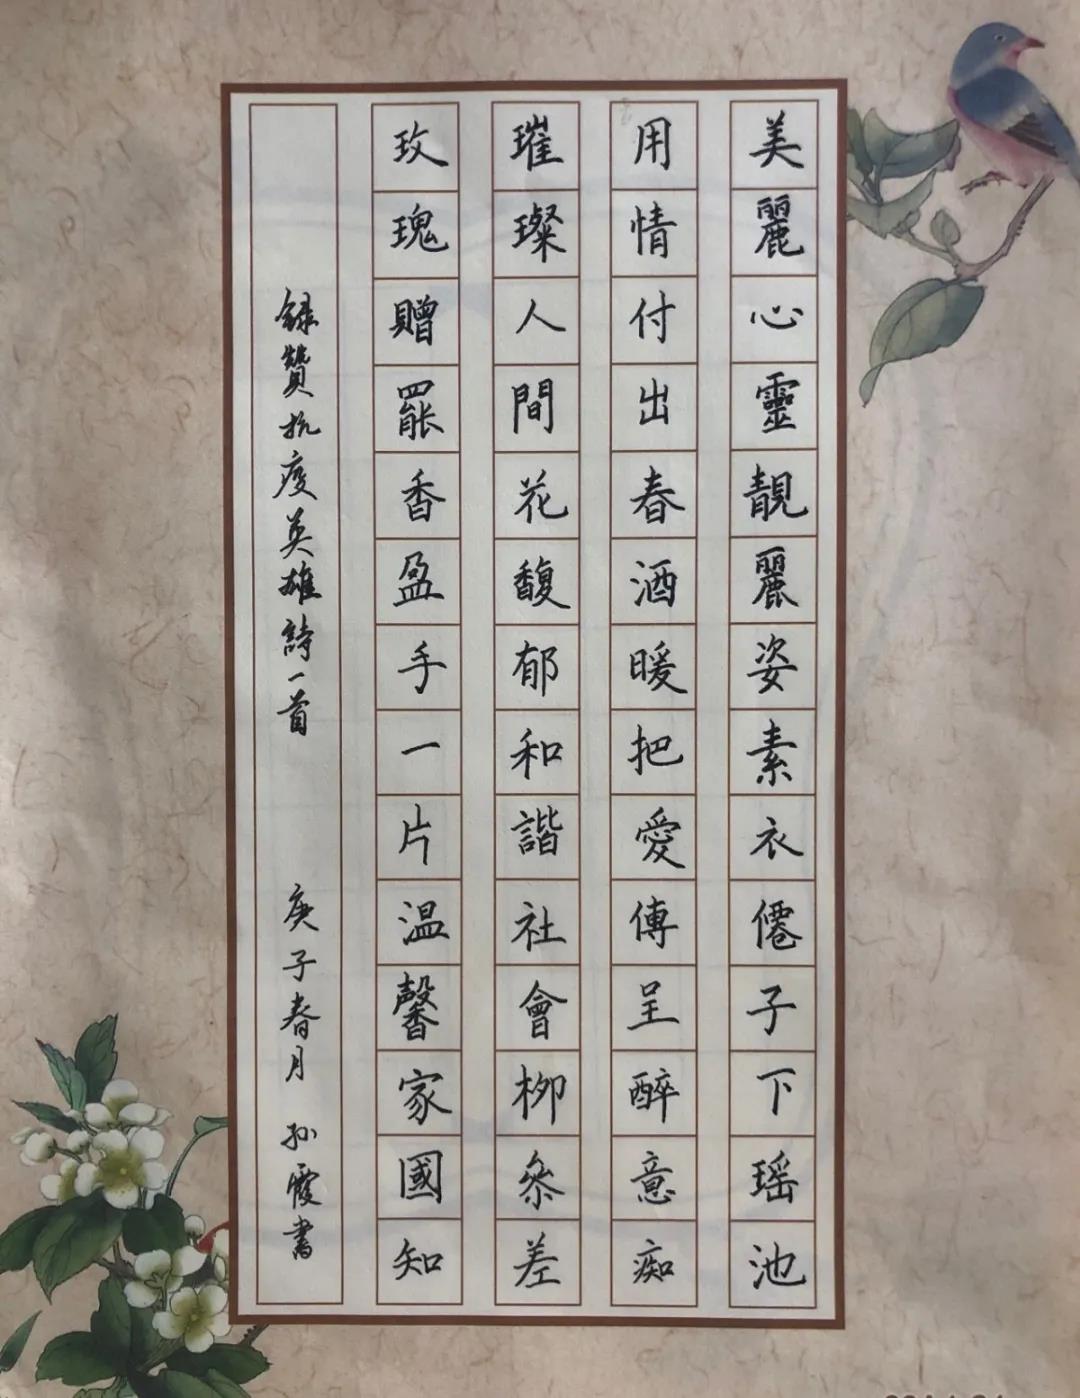 美麗心靈靚麗姿素衣僊子下瑶池
用情付出春酒暖把愛傳呈醉意痴
璀璨人間花馥郁和諧社會柳叅差
玫瑰贈罷香盈手一片温馨家國知
録贊抗疫英雄詩一首 庚子春月 孙霞書